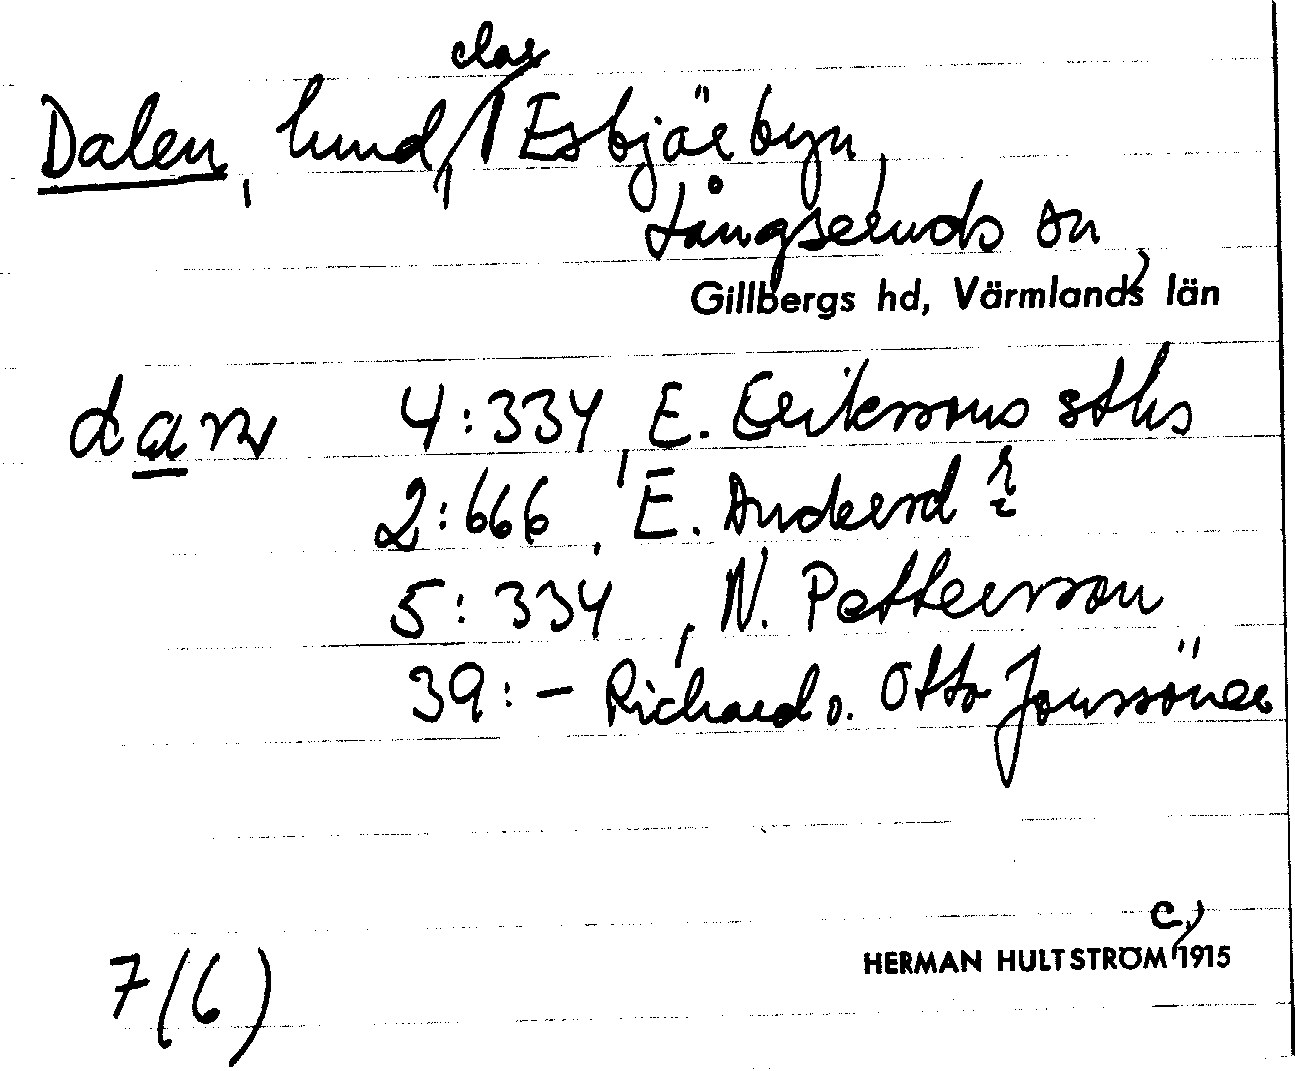 clas
Dalen, lund, Esbjörbyn,
Långseruds sn,
Gillbergs hd, Värmlands län
dan 4:334, E. Erikssons sths
2:666, E. Andersd
5:334, N. Petterson
39:– Richard o. Otto Jonssöner
c.
HERMAN HULTSTRÖM 1915
7(6)